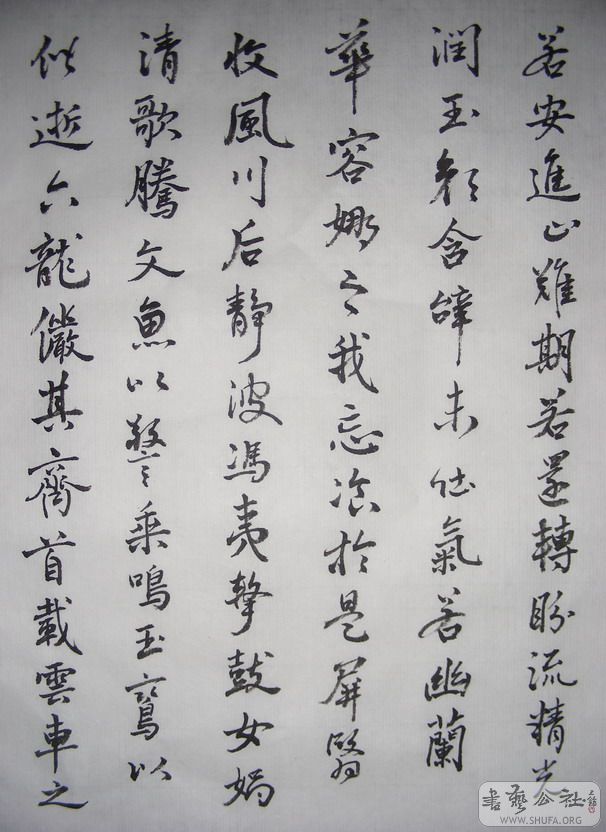 若安進止難期若還轉盼流精光
潤玉顏含辭未吐氣若幽蘭
華容娜令我忘飡於是屏翳
收風川后靜波馮夷擊鼓女媧
清歌騰文魚以警乘鳴玉鸞以
偕逝六龍儼其齊首載雲車之
書藝公社
WWW.SHUFA.ORG